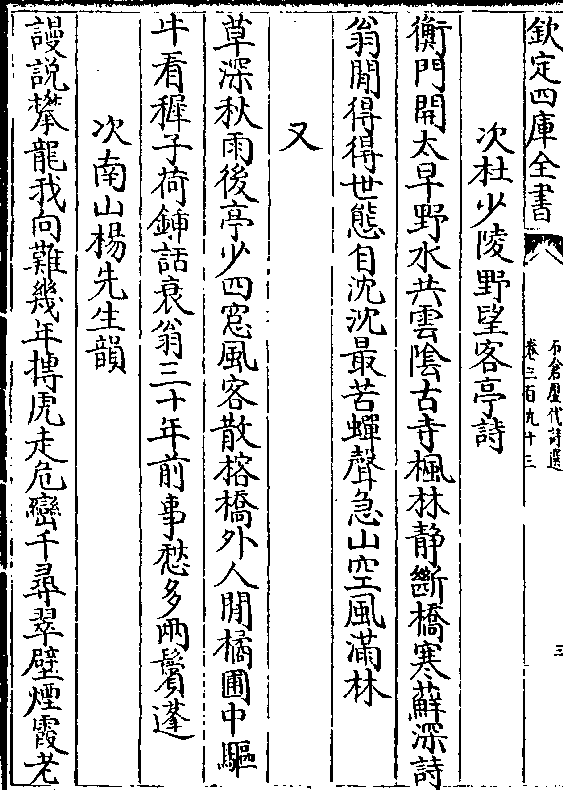 欽定四庫全書
石倉歷代詩選
卷三百九十三
三
次杜少陵野望客亭詩
衡門開太早野水共雲陰古寺楓林静斷橋寒蘚深詩
翁閒得得世態自沈沈最苦蟬聲急山空風滿林
又
草深秋雨後亭少四窓風客散榕橋外人閒橘圃中驅
牛看穉子荷鍤話衰翁三十年前事愁多兩鬢蓬
次南山楊先生韻
謾説攀龍我向難幾年摶虎走危巒千尋翠壁煙霞老